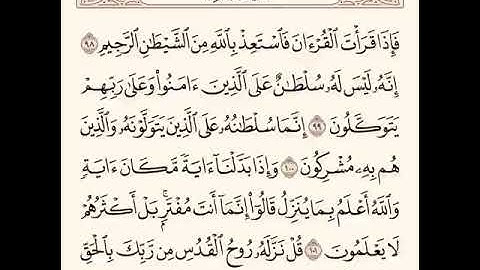 فَإِذَا قَرَأْتَ ٱلْقُرْءَانَ فَٱسْتَعِذْ بِٱللَّهِ مِنَ ٱلشَّيْطَٰنِ ٱلرَّجِيمِ ٩٨
إِنَّهُۥ لَيْسَ لَهُۥ سُلْطَٰنٌ عَلَى ٱلَّذِينَ ءَامَنُوا۟ وَعَلَىٰ رَبِّهِمْ
يَتَوَكَّلُونَ ٩٩ إِنَّمَا سُلْطَٰنُهُۥ عَلَى ٱلَّذِينَ يَتَوَلَّوْنَهُۥ وَٱلَّذِينَ
هُم بِهِۦ مُشْرِكُونَ ١٠٠ وَإِذَا بَدَّلْنَآ ءَايَةً مَّكَانَ ءَايَةٍ
وَٱللَّهُ أَعْلَمُ بِمَا يُنَزِّلُ قَالُوٓا۟ إِنَّمَآ أَنتَ مُفْتَرٍۭ بَلْ أَكْثَرُهُمْ
لَا يَعْلَمُونَ ١٠١ قُلْ نَزَّلَهُۥ رُوحُ ٱلْقُدُسِ مِن رَّبِّكَ بِٱلْحَقِّ